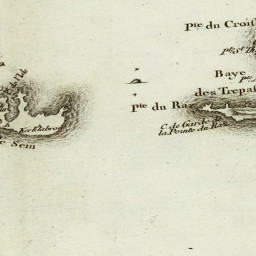 Pte du Crois
Pte St Th
Baye
des Trepas
Pte du Raz
C. de Garde de
la Pointe du Raz
Kerklabrou
e Sein